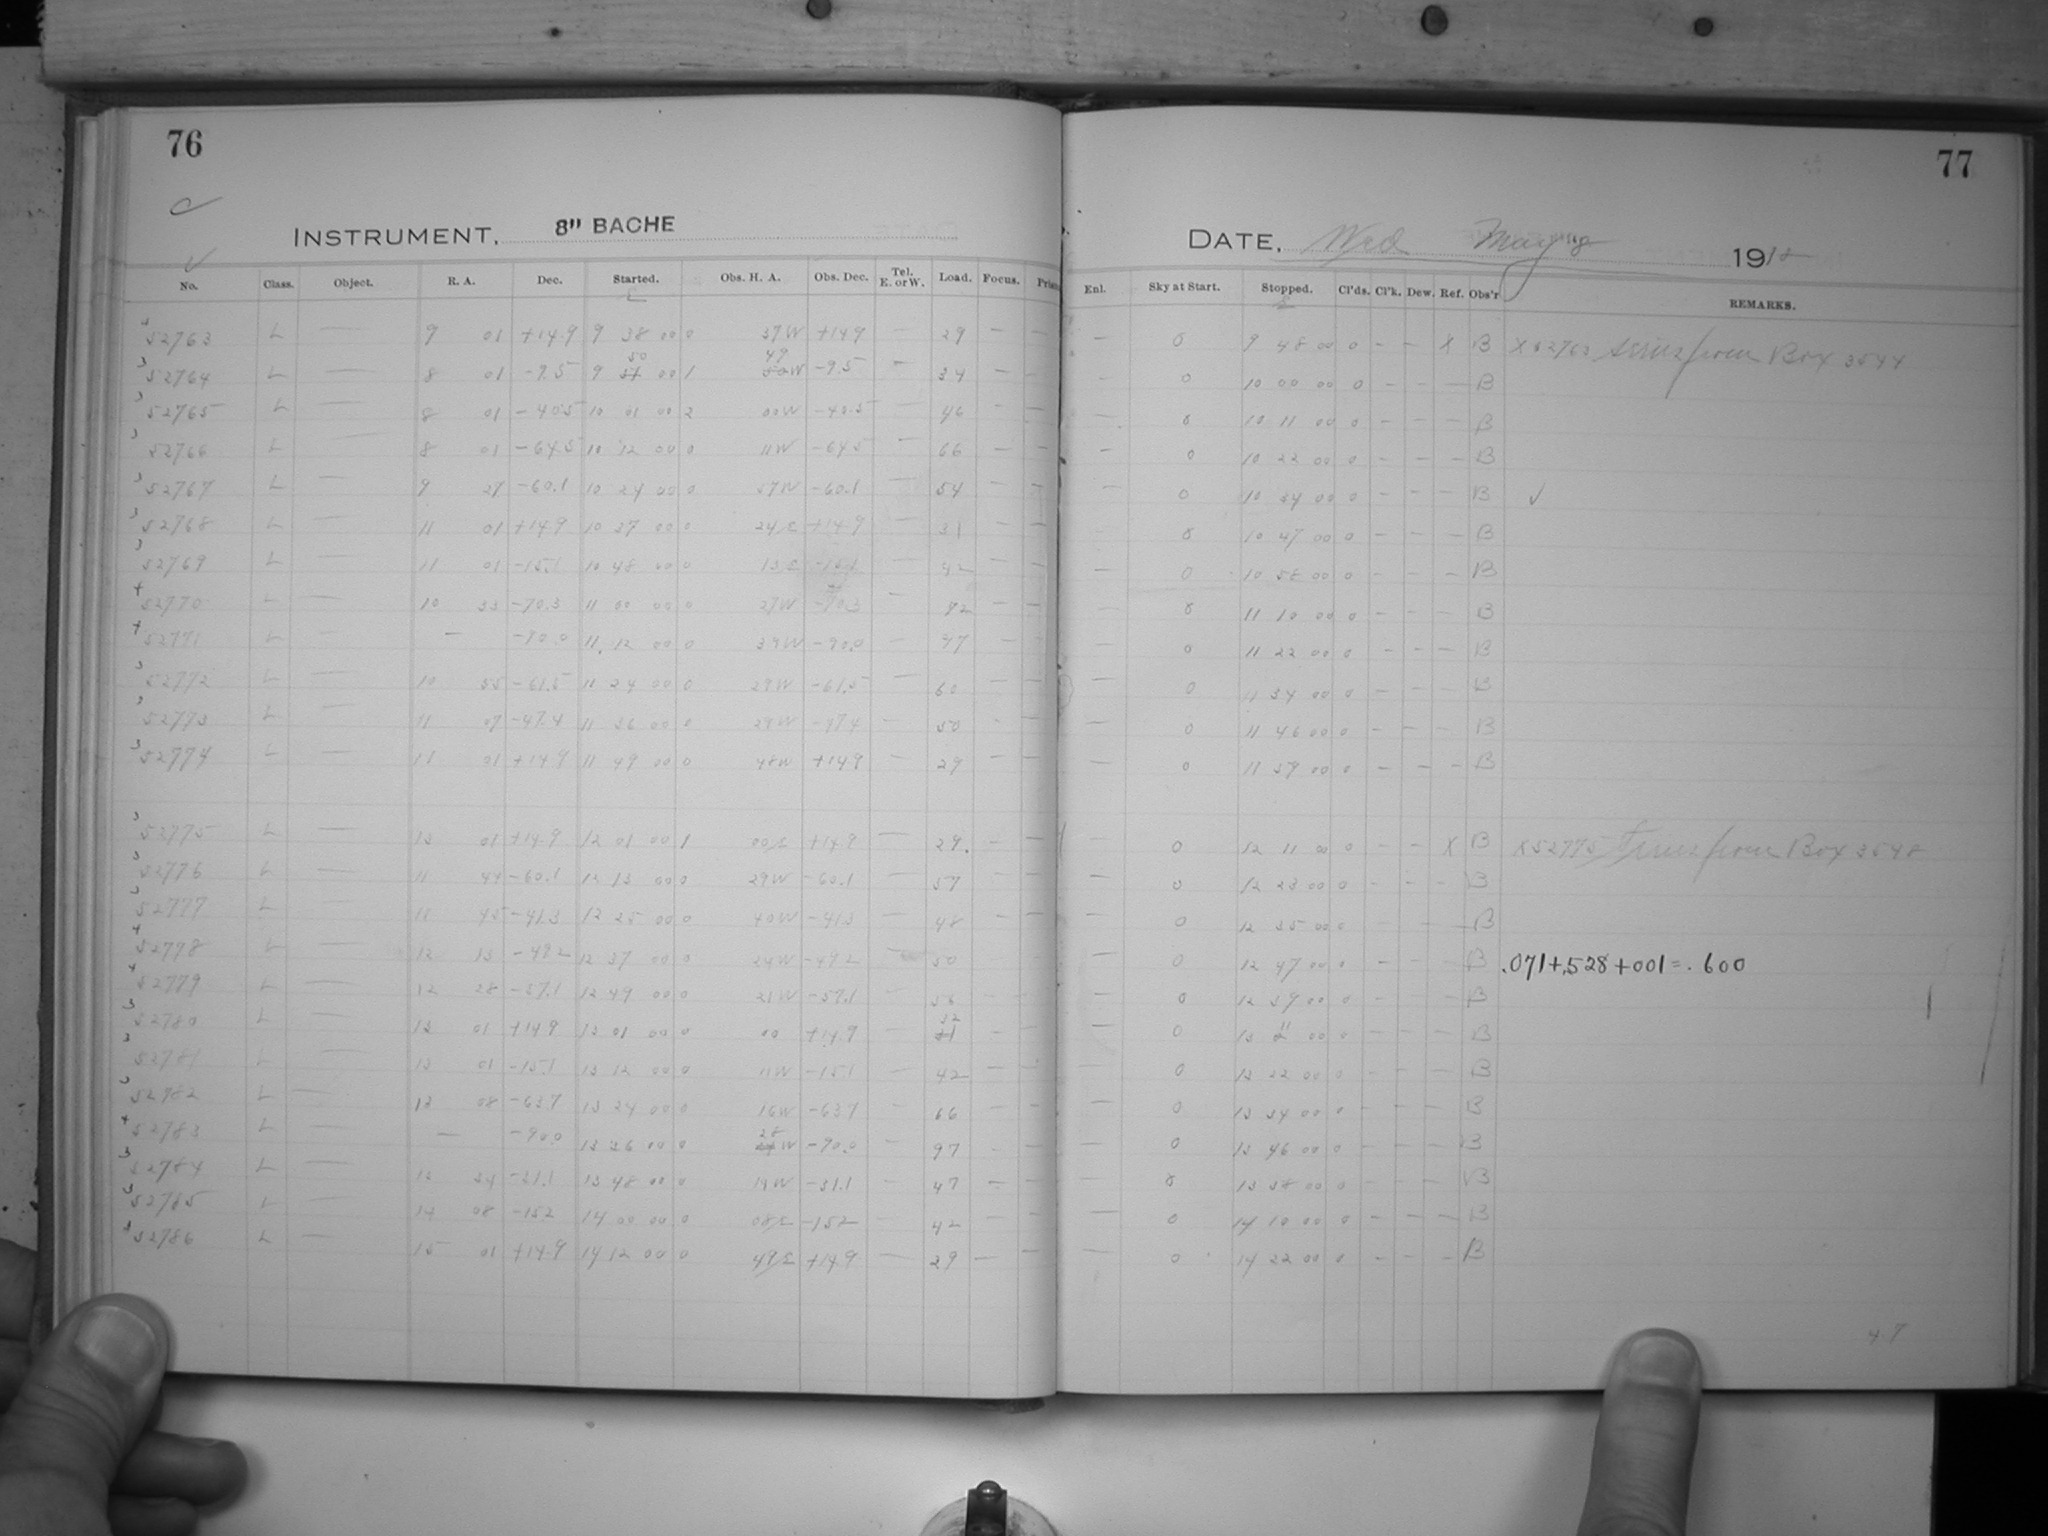 76
INSTRUMENT, 8" BACHE
No. Class. Object. R. A. Dec. Started. Obs. H. A. Obs. Dec. Tel. E. or W. Load. Focus.
52763 L — 9 01 +14.9 9 38 00 0 37W +14.9 — 29 — —
52764 L — 8 01 -9.5 9 50 00 1 49 W -9.5 — 34 — —
52765 L — 8 01 -40.5 10 01 00 2 00W -40.5 — 46 — —
52766 L — 8 01 -64.5 10 12 00 0 11W -64.5 — 66 — —
52767 L — 9 27 -60.1 10 24 00 0 57W -60.1 — 54 — —
52768 L — 11 01 +14.9 10 37 00 0 24E +14.9 — 31 — —
52769 L — 11 01 -15.1 10 48 00 0 13E -15.1 — 42 — —
52770 L — 10 33 -70.3 11 00 00 0 27W -70.3 — 72 — —
52771 L — — -90.0 11 12 00 0 39W -90.0 — 97 — —
52772 L — 10 55 -61.5 11 24 00 0 29W -61.5 — 60 — —
52773 L — 11 07 -47.4 11 36 00 0 29W -47.4 — 50 — —
52774 L — 11 01 +14.9 11 49 00 0 48W +14.9 — 29 — —
52775 L — 13 01 +14.9 12 01 00 1 00E +14.9 — 29. — —
52776 L — 11 44 -60.1 12 13 00 0 29W -60.1 — 57 — —
52777 L — 11 45 -41.3 12 25 00 0 40W -41.3 — 48 — —
52778 L — 12 13 -49.2 12 37 00 0 24W -49.2 — 50 — —
52779 L — 12 28 -57.1 12 49 00 0 21W -57.1 — 56 — —
52780 L — 13 01 +14.9 13 01 00 0 00 +14.9 — 32 — —
52781 L — 13 01 -15.1 13 12 00 0 11W -15.1 — 42 — —
52782 L — 13 08 -63.7 13 24 00 0 16W -63.7 — 66 — —
52783 L — — -90.0 13 36 00 0 28 W -90.0 — 97 — —
52784 L — 13 34 -31.1 13 48 00 0 14W -31.1 — 47 — —
52785 L — 14 08 -15.2 14 00 00 0 08E -15.2 — 42 — —
52786 L — 15 01 +14.9 14 12 00 0 49E +14.9 — 29 — —
77
DATE, Wed May 8 1912
Enl. Sky at Start. Stopped. Cl'ds. Cl'k. Dew. Ref. Obs'r REMARKS.
— 0 9 48 00 0 — — X B X 52763 Series from Box 3544
— 0 10 00 00 0 — — — B
— 0 10 11 00 0 — — — B
— 0 10 22 00 0 — — — B
— 0 10 34 00 0 — — — B ✓
— 0 10 47 00 0 — — — B
— 0 10 58 00 0 — — — B
— 0 11 10 00 0 — — — B
— 0 11 22 00 0 — — — B
— 0 11 34 00 0 — — — B
— 0 11 46 00 0 — — — B
— 0 11 59 00 0 — — — B
— 0 12 11 00 0 — — X B X 52775 Series from Box 3548
— 0 12 23 00 0 — — — B
— 0 12 35 00 0 — — — B
— 0 12 47 00 0 — — — B .071+.528+001=.600
— 0 12 59 00 0 — — — B
— 0 13 11 00 0 — — — B
— 0 13 22 00 0 — — — B
— 0 13 34 00 0 — — — B
— 0 13 46 00 0 — — — B
— 0 13 58 00 0 — — — B
— 0 14 10 00 0 — — — B
— 0 14 22 00 0 — — — B
4.7